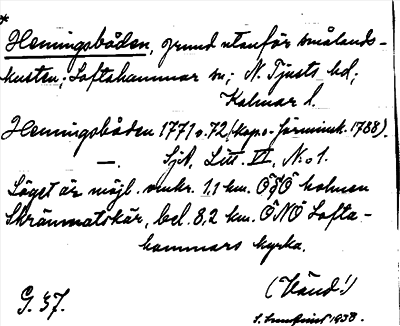 *
Henningsbåden, grund utanför smålands-
kusten; Loftahammar sn; N. Tjusts hd;
Kalmar l.
Henningsbåden 1771 o. 72 (kop. o. 1788).
—. SjK, Litt. VI, N:o 1.
Läget är möjl. omkr. 1,1 km. ÖSÖ holmen
Skrännatskär, bel. 8,2 km. ÖNÖ Lofta-
hammars kyrka.
(Vänd!)
G. 37.
1938.